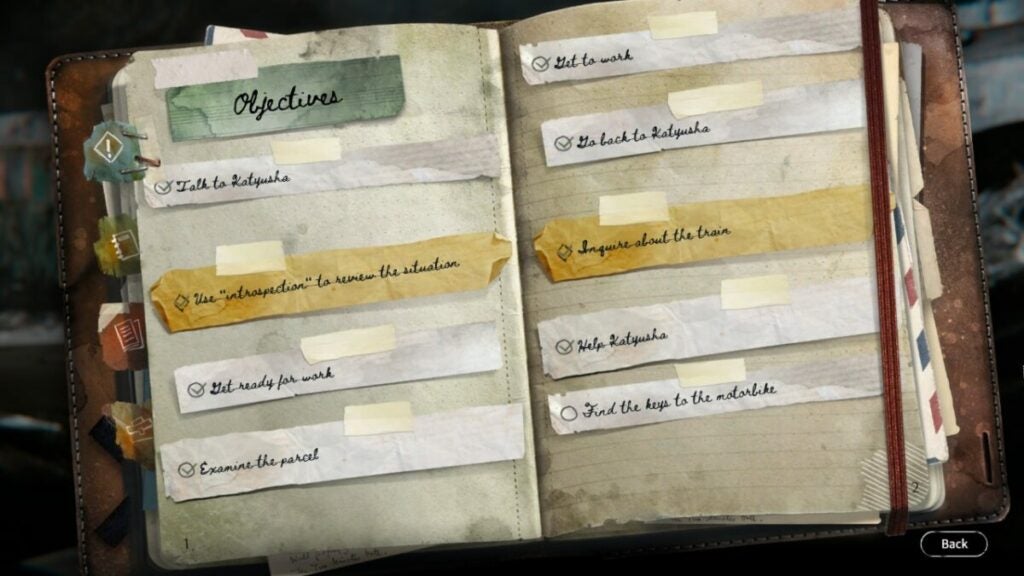 Objectives
Talk to Katyusha
Use "introspection" to review the situation
Get ready for work
Examine the parcel
1
Get to work
Go back to Katyusha
Inquire about the train
Help Katyusha
Find the keys to the motorbike
2
Back